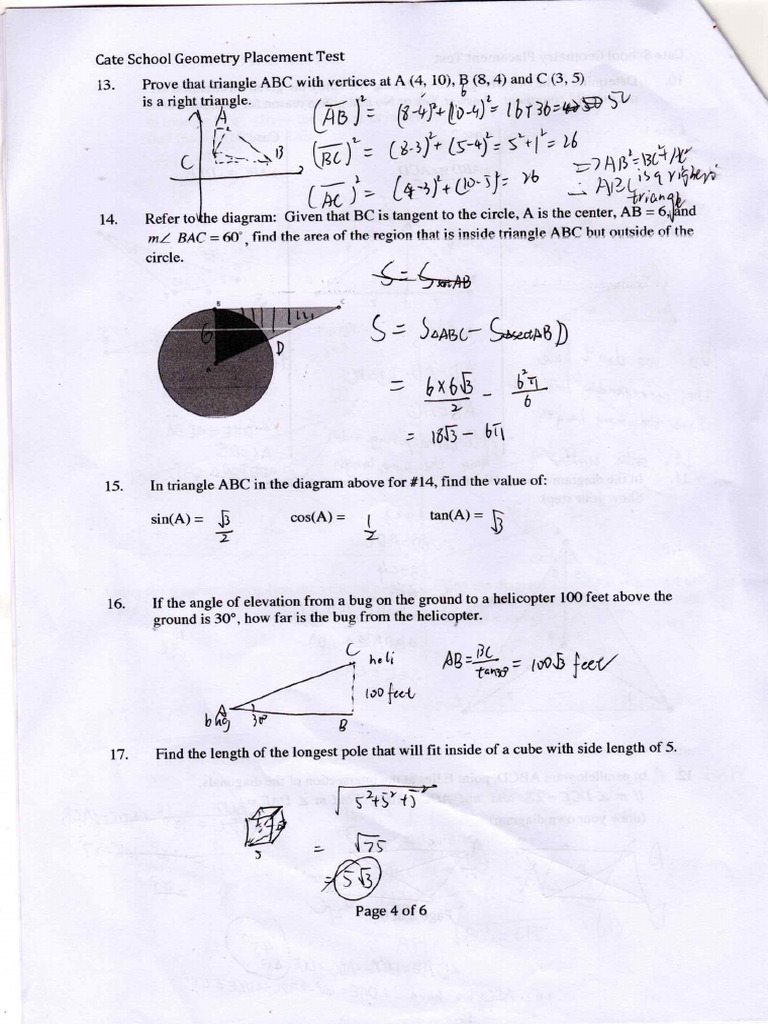 Cate School Geometry Placement Test
13. Prove that triangle ABC with vertices at A (4, 10), B (8, 4) and C (3, 5)
is a right triangle.
A
C
B
(AB)² = (8-4)²+(10-4)² = 16+36 = 52
(BC)² = (8-3)²+(5-4)² = 5²+1² = 26
(AC)² = (4-3)²+(10-5)² = 26
=> AB²=BC²+AC²
∴ ABC is a right
triangle
14. Refer to the diagram: Given that BC is tangent to the circle, A is the center, AB = 6, and
m∠ BAC = 60°, find the area of the region that is inside triangle ABC but outside of the
circle.
B
C
6
D
A
S = S△ABC - SsectABD
= 6×6√3/2 - 6²π/6
= 18√3 - 6π
15. In triangle ABC in the diagram above for #14, find the value of:
sin(A) = √3/2 cos(A) = 1/2 tan(A) = √3
16. If the angle of elevation from a bug on the ground to a helicopter 100 feet above the
ground is 30°, how far is the bug from the helicopter.
C
heli
100 feet
A
bug
30°
B
AB = BC/tan30° = 100√3 feet
17. Find the length of the longest pole that will fit inside of a cube with side length of 5.
5
√5²+5²+5²
= √75
= 5√3
Page 4 of 6